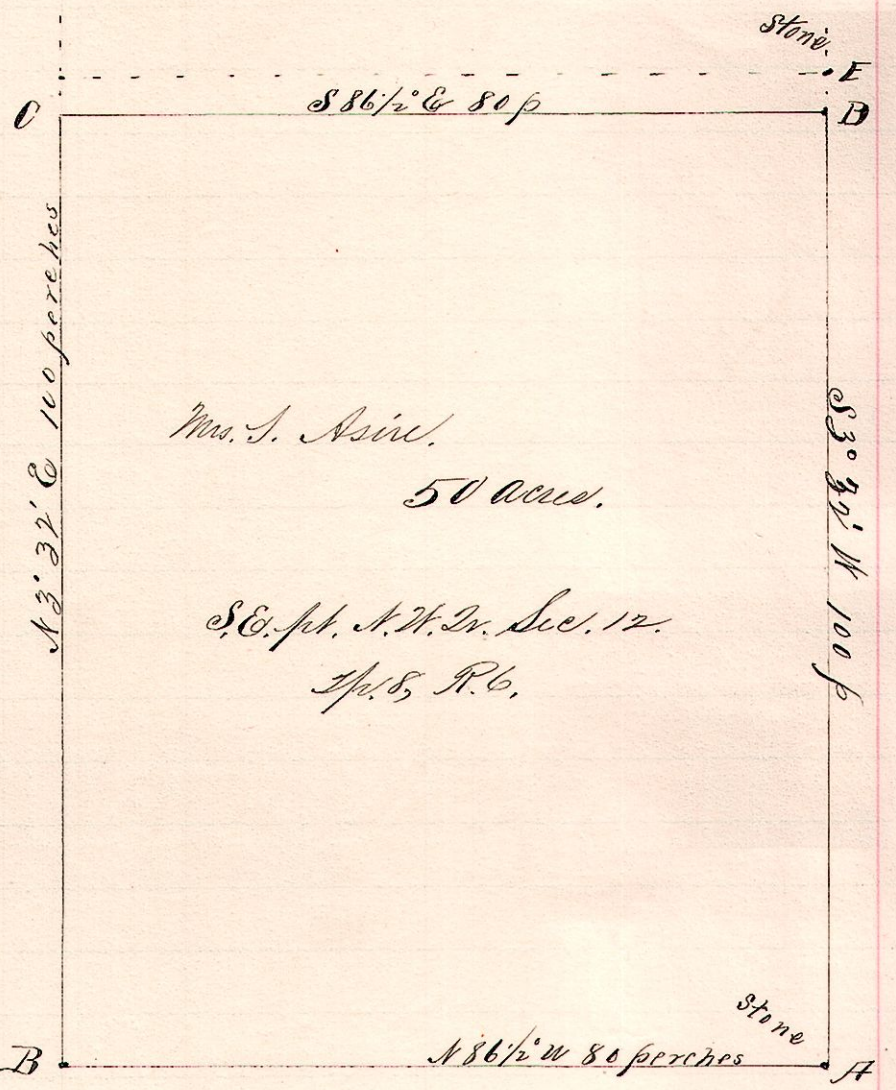 Stone.
E
C
S 86 1/2° E 80 p
D
N 3° 32' E 100 perches
S 3° 32' W 100 p
Mrs. S. Asire.
50 acres.
S.E. pt. N.W. Qr. Sec. 12.
Tp. 8, R. 6.
Stone
B
N 86 1/2° W 80 perches
A